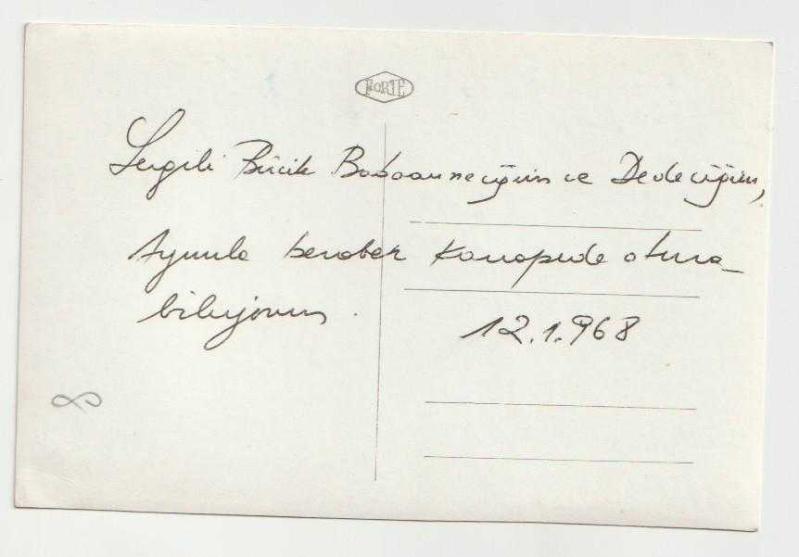 FORTE
Sevgili Bücik Babaanneciğim ve Dedeciğim,
Ayımla beraber kanapede otura-
biliyorum.
12.1.968
8